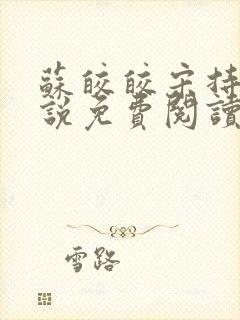 蘇皎皎宋持
說免費閱讀
雪路